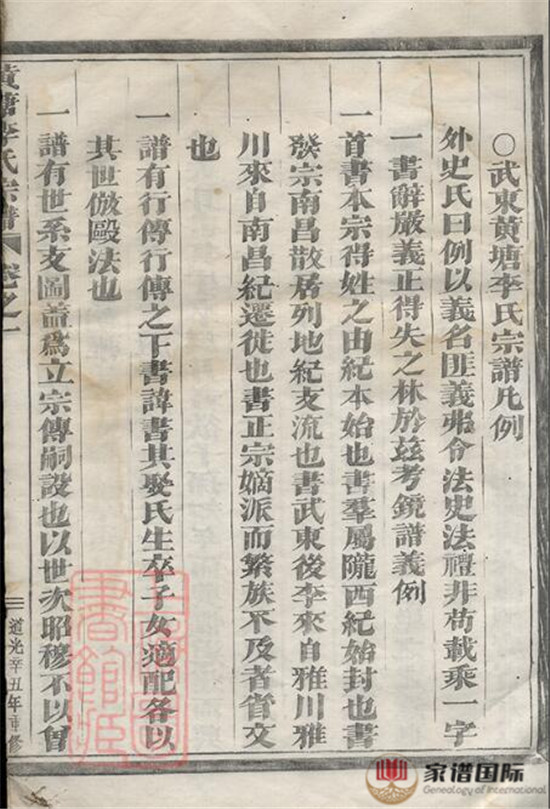 ○武東黄塘李氏宗譜凡例
外史氏曰例以義名匪義弗令法史法禮非苟載乘一字
一書辭嚴義正得失之林於玆考鏡譜義例
一首書本宗得姓之由紀本始也書羣屬隴西紀始封也書
發宗南昌散居列地紀支流也書武東後李來自雅川雅
川來自南昌紀遷徙也書正宗嫡派而繁族不及者省文
也
一譜有行傳行傳之下書諱書其娶氏生卒子女適配各以
其世倣歐法也
一譜有世系支圖蓋爲立宗傳嗣設也以世次昭穆不以曾
黄塘李氏宗譜 卷之一
道光辛丑年重修
家谱国际
Genealogy of International